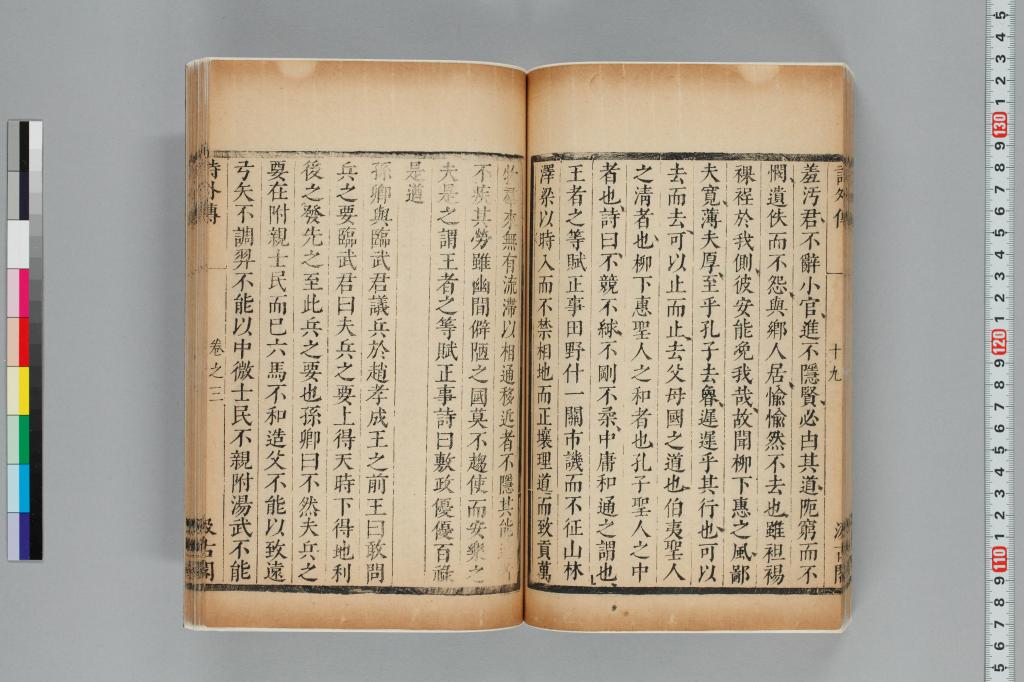 羞汚君不辭小官進不隱賢必由其道阨窮而不
憫遺佚而不怨與鄉人居愉愉然不去也雖袒裼
裸裎於我側彼安能浼我哉故聞柳下惠之風鄙
夫寬薄夫厚至乎孔子去魯遲遲乎其行也可以
去而去可以止而止去父母國之道也伯夷聖人
之淸者也柳下惠聖人之和者也孔子聖人之中
者也詩曰不競不絿不剛不柔中庸和通之謂也
王者之等賦正事田野什一關市譏而不征山林
澤梁以時入而不禁相地而正壤理道而致貢萬
物羣來無有流滯以相通移近者不隱其能
不疾其勞雖幽間僻陋之國莫不趨使而安樂之
夫是之謂王者之等賦正事詩曰敷政優優百祿
是遒
孫卿與臨武君議兵於趙孝成王之前王曰敢問
兵之要臨武君曰夫兵之要上得天時下得地利
後之發先之至此兵之要也孫卿曰不然夫兵之
要在附親士民而已六馬不和造父不能以致遠
弓矢不調羿不能以中微士民不親附湯武不能
詩外傳
卷之三
十九
汲古閣